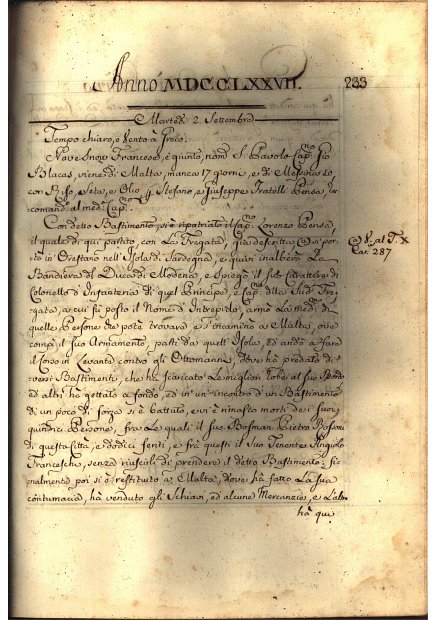 Anno MDCCLXXVII. 233
Martedì 2. Settembre
Tempo chiaro, e Vento à Greco.
Nave Snow Francese, è quinto, nom.ª S. Pavolo Cap.no Gio:
Nicolacas, viene di Malta, manca 17 giorni, e di Messina 10,
con Riso, Seta, ed Olio, Stefano, e Giuseppe Fratelli Bensa,
comand.º al med.º Cap.no
Con detto Bastimento, si è ripatriato il Cap.no Lorenzo Bensa,
il quale di qui partito, con La Fregata, già descritta (a) si por= (a) V.º al T. X
tò in Orestano nell'Isola di Sardegna, e quivi inalberò La Car. 287
Bandiera del Duca di Modena, e spiegò il suo Carattere di
Colonello d'Infanteria di quel Principe, e Cap.no della sud.ª Fre=
gata, a cui fù posto il Nome d'Intrepido, armò La med.ma di
quelle Persone che potè trovare e s'incaminò a Malta, ove
compì il suo Armamento, partì da quell'Isola, ed andò a fare
il Corso in Levante contro gli Ottomanni, dove hà predato di=
versi Bastimenti, che hà scaricato Le migliori robe al suo Bordo
ed altri hà gettati a fondo, ed in un incontro d'un Bastimento
di un poco di forza si è battuto, e vi è rimasto morti de i suoi
quindici Persone, fra Le quali il suo Bosman Pietro
di questa Città, e dodici feriti, e frà questi il suo Tenente Angiolo
Franceschi, senza riuscirli di prendere il detto Bastimento: fi=
nalmente poi si è restituto a Malta, dove hà fatto La sua
contumacia, hà venduto gli Schiavi, ed alcune Mercanzie, e
hà qui